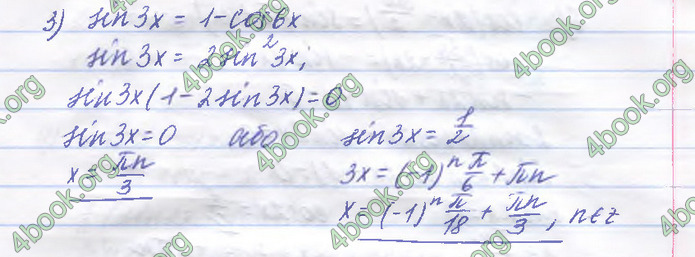 3) sin3x = 1-cos6x
sin3x = 2sin²3x;
sin3x(1-2sin3x)=0
sin3x=0 або sin3x = 1/2
x = πn/3 3x = (-1)ⁿ π/6 + πn
x = (-1)ⁿ π/18 + πn/3, n∈z
4book.org
4book.org
4book.org
4book.org
4book.org
4book.org
4book.org